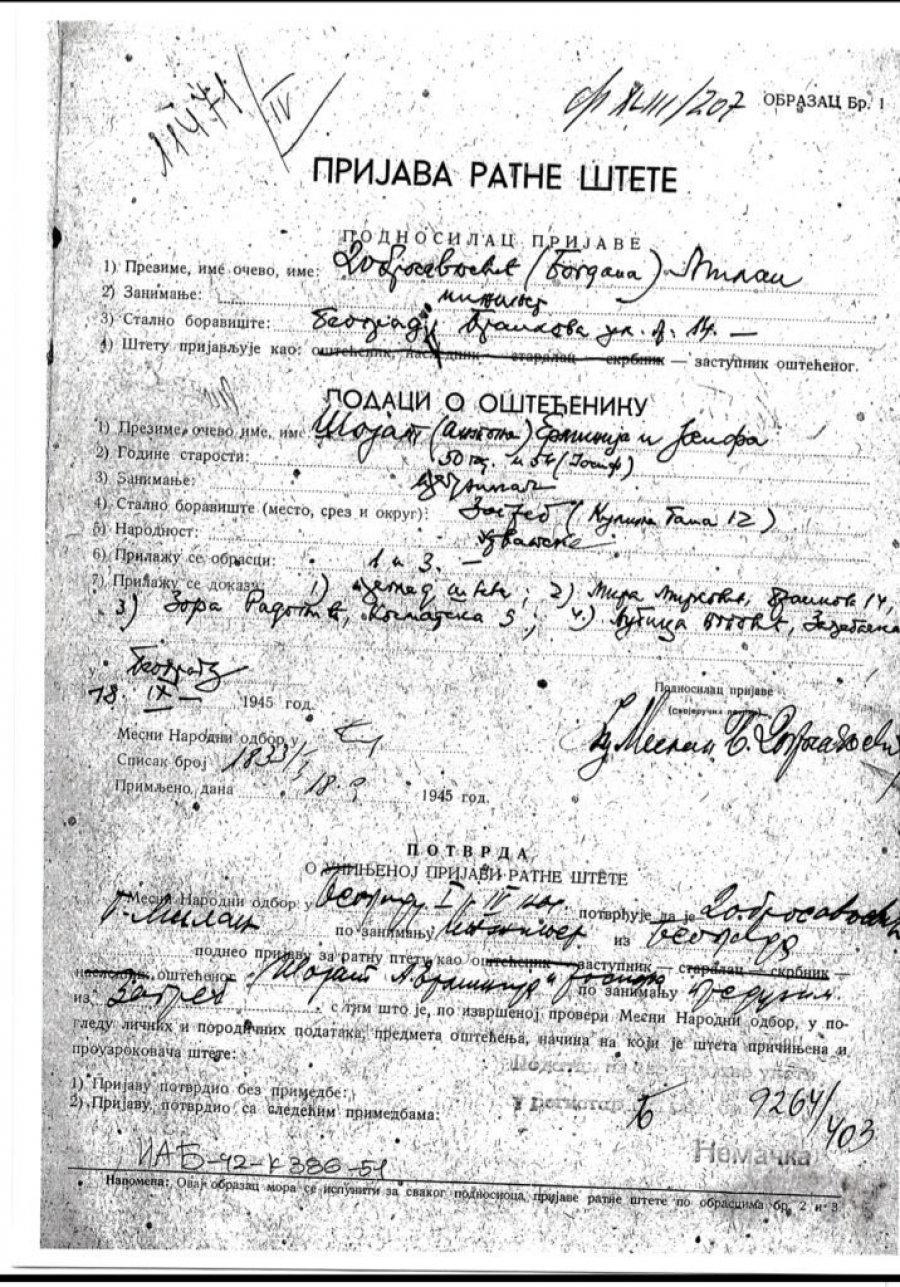 11471/IV
XLIII/207 ОБРАЗАЦ Бр. 1
ПРИЈАВА РАТНЕ ШТЕТЕ
ПОДНОСИЛАЦ ПРИЈАВЕ
1) Презиме, име очево, име: Добросављевић (Богдана) Милан
2) Занимање: инжињер
3) Стално боравиште: Београд, Бранкова ул. бр. 14. —
4) Штету пријављује као: оштећеник, наследник — старалац — скрбник — заступник оштећеног.
ПОДАЦИ О ОШТЕЋЕНИКУ
1) Презиме, очево име, име: Шојат (Антона) и Јосифа
2) Године старости: 50 год. и (Јосиф)
3) Занимање:
4) Стално боравиште (место, срез и округ): Загреб (Кулина Бана 12)
5) Народност: хрватске
6) Прилажу се обрасци: 1 и 3. —
7) Прилажу се докази: 1) 2) Мира Бранкова 14,
3) Зора 5; 4.)
у Београду
18. IX — 1945 год.
Подносилац пријаве
(својеручни потпис)
Милан Б. Добросављевић
Месни Народни одбор у
Списак број 1833/
Примљено, дана 18.9 1945 год.
ПОТВРДА
О УЧИЊЕНОЈ ПРИЈАВИ РАТНЕ ШТЕТЕ
Месни Народни одбор у Београду I и IV потврђује да је Добросављевић
Милан по занимању инжињер из Београда
поднео пријаву за ратну штету као оштећеник — заступник — старалац — скрбник —
наследник оштећеног Шојат по занимању
из Загреб с тим што је, по извршеној провери Месни Народни одбор, у по-
гледу личних и породичних података, предмета оштећења, начина на који је штета причињена и
проузроковача штете:
1) Пријаву потврдио без примедбе:
2) Пријаву, потврдио са следећим примедбама:
Б 9264/403
Немачка
ИАБ-42-К386-51
Напомена: Овај образац мора се испунити за сваког подносиоца пријаве ратне штете по обрасцима бр. 2 и 3